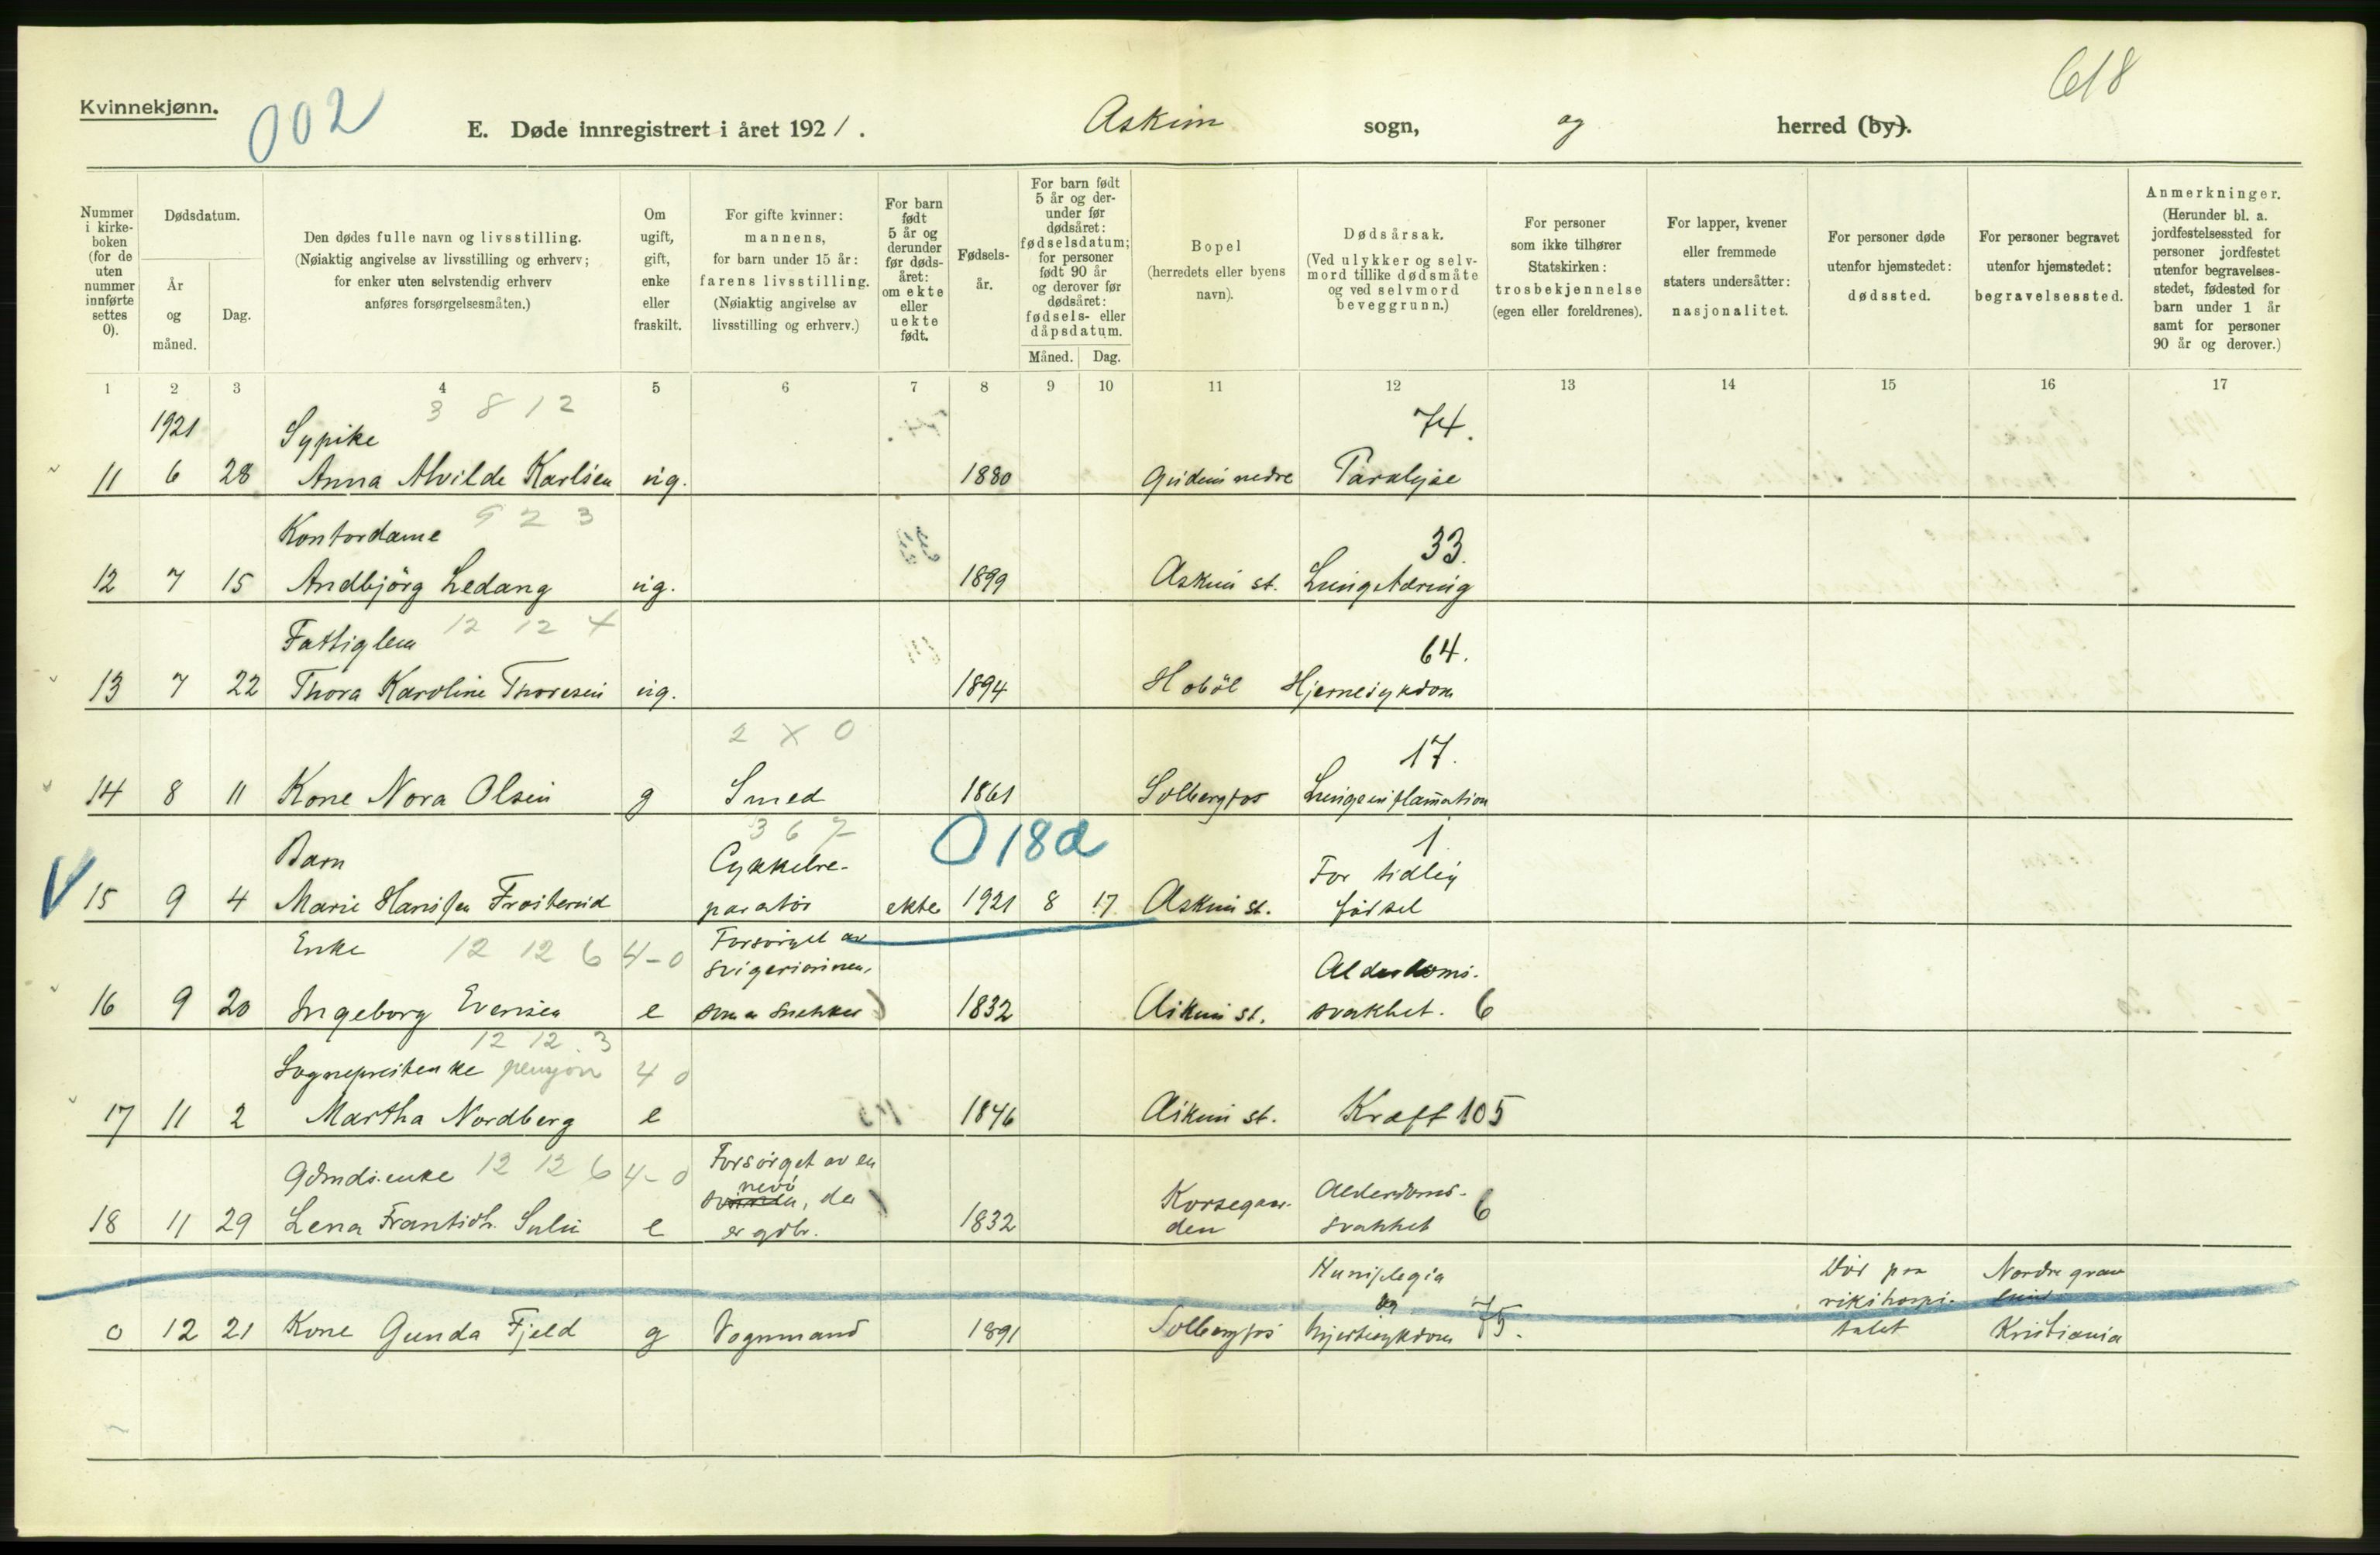 618
Kvinnekjønn.
002
E. Døde innregistrert i året 1921. Askim sogn, og herred (by).
Nummer i kirke-boken (for de uten nummer innførte settes 0).
Dødsdatum.
År og måned.
Dag.
Den dødes fulle navn og livsstilling.
(Nøiaktig angivelse av livsstilling og erhverv;
for enker uten selvstendig erhverv
anføres forsørgelsesmåten.)
Om ugift, gift, enke eller fraskilt.
For gifte kvinner:
mannens,
for barn under 15 år:
farens livsstilling.
(Nøiaktig angivelse av
livsstilling og erhverv.)
For barn født 5 år og derunder før døds-året: om ekte eller uekte født.
Fødsels-år.
For barn født 5 år og der-under før dødsåret: fødselsdatum; for personer født 90 år og derover før dødsåret: fødsels- eller dåpsdatum.
Måned. Dag.
Bopel
(herredets eller byens
navn).
Dødsårsak.
(Ved ulykker og selv-
mord tillike dødsmåte
og ved selvmord
beveggrunn.)
For personer
som ikke tilhører
Statskirken:
trosbekjennelse
(egen eller foreldrenes).
For lapper, kvener
eller fremmede
staters undersåtter:
nasjonalitet.
For personer døde
utenfor hjemstedet:
dødssted.
For personer begravet
utenfor hjemstedet:
begravelsessted.
Anmerkninger.
(Herunder bl. a.
jordfestelsessted for
personer jordfestet
utenfor begravelses-
stedet, fødested for
barn under 1 år
samt for personer
90 år og derover.)
1 2 3 4 5 6 7 8 9 10 11 12 13 14 15 16 17
1921 Sypike 3 8 12 74.
11 6 28 Anna Alvilde Karlsen ug. 1880 nedre Paralyse
Kontordame 9 2 3 33.
12 7 15 Andbjörg Ledang ug. 1899 Askim st. Lungetæring
Fattiglem 12 12 4 64.
13 7 22 Thora Karoline Thoresen ug. 1894 Hobøl Hjernesykdom
2 X 0 17.
14 8 11 Kone Nora Olsen g Smed 1861 Solbergfos Lungeinflamation
3 6 7 018a 1
Barn Cykkelre- For tidlig
15 9 4 Marie Hansen Frosterud paratör ekte 1921 8 17 Askim st. födsel
Enke 12 12 6 4-0 Forsörget av
svigersönnen, Alderdoms-
16 9 20 Ingeborg Evensen e som er snekker 1832 Askim st. svakhet. 6
12 12 3
Sogneprestenke pensjon 4 0
17 11 2 Martha Nordberg e 1846 Askim st. Kræft 105
Gdmds.enke 12 12 6 4-0 Forsørget av en
nevö, der Korsegaar- Alderdoms-
18 11 29 Lena Frantsdt. Sulu e er gdbr. 1832 den svakhet 6
Hemiplegia Död paa Nordre grav
og rikshospi- lund
0 12 21 Kone Gunda Fjeld g Vognmand 1891 Solbergfos hjertesykdom 75. talet Kristiania